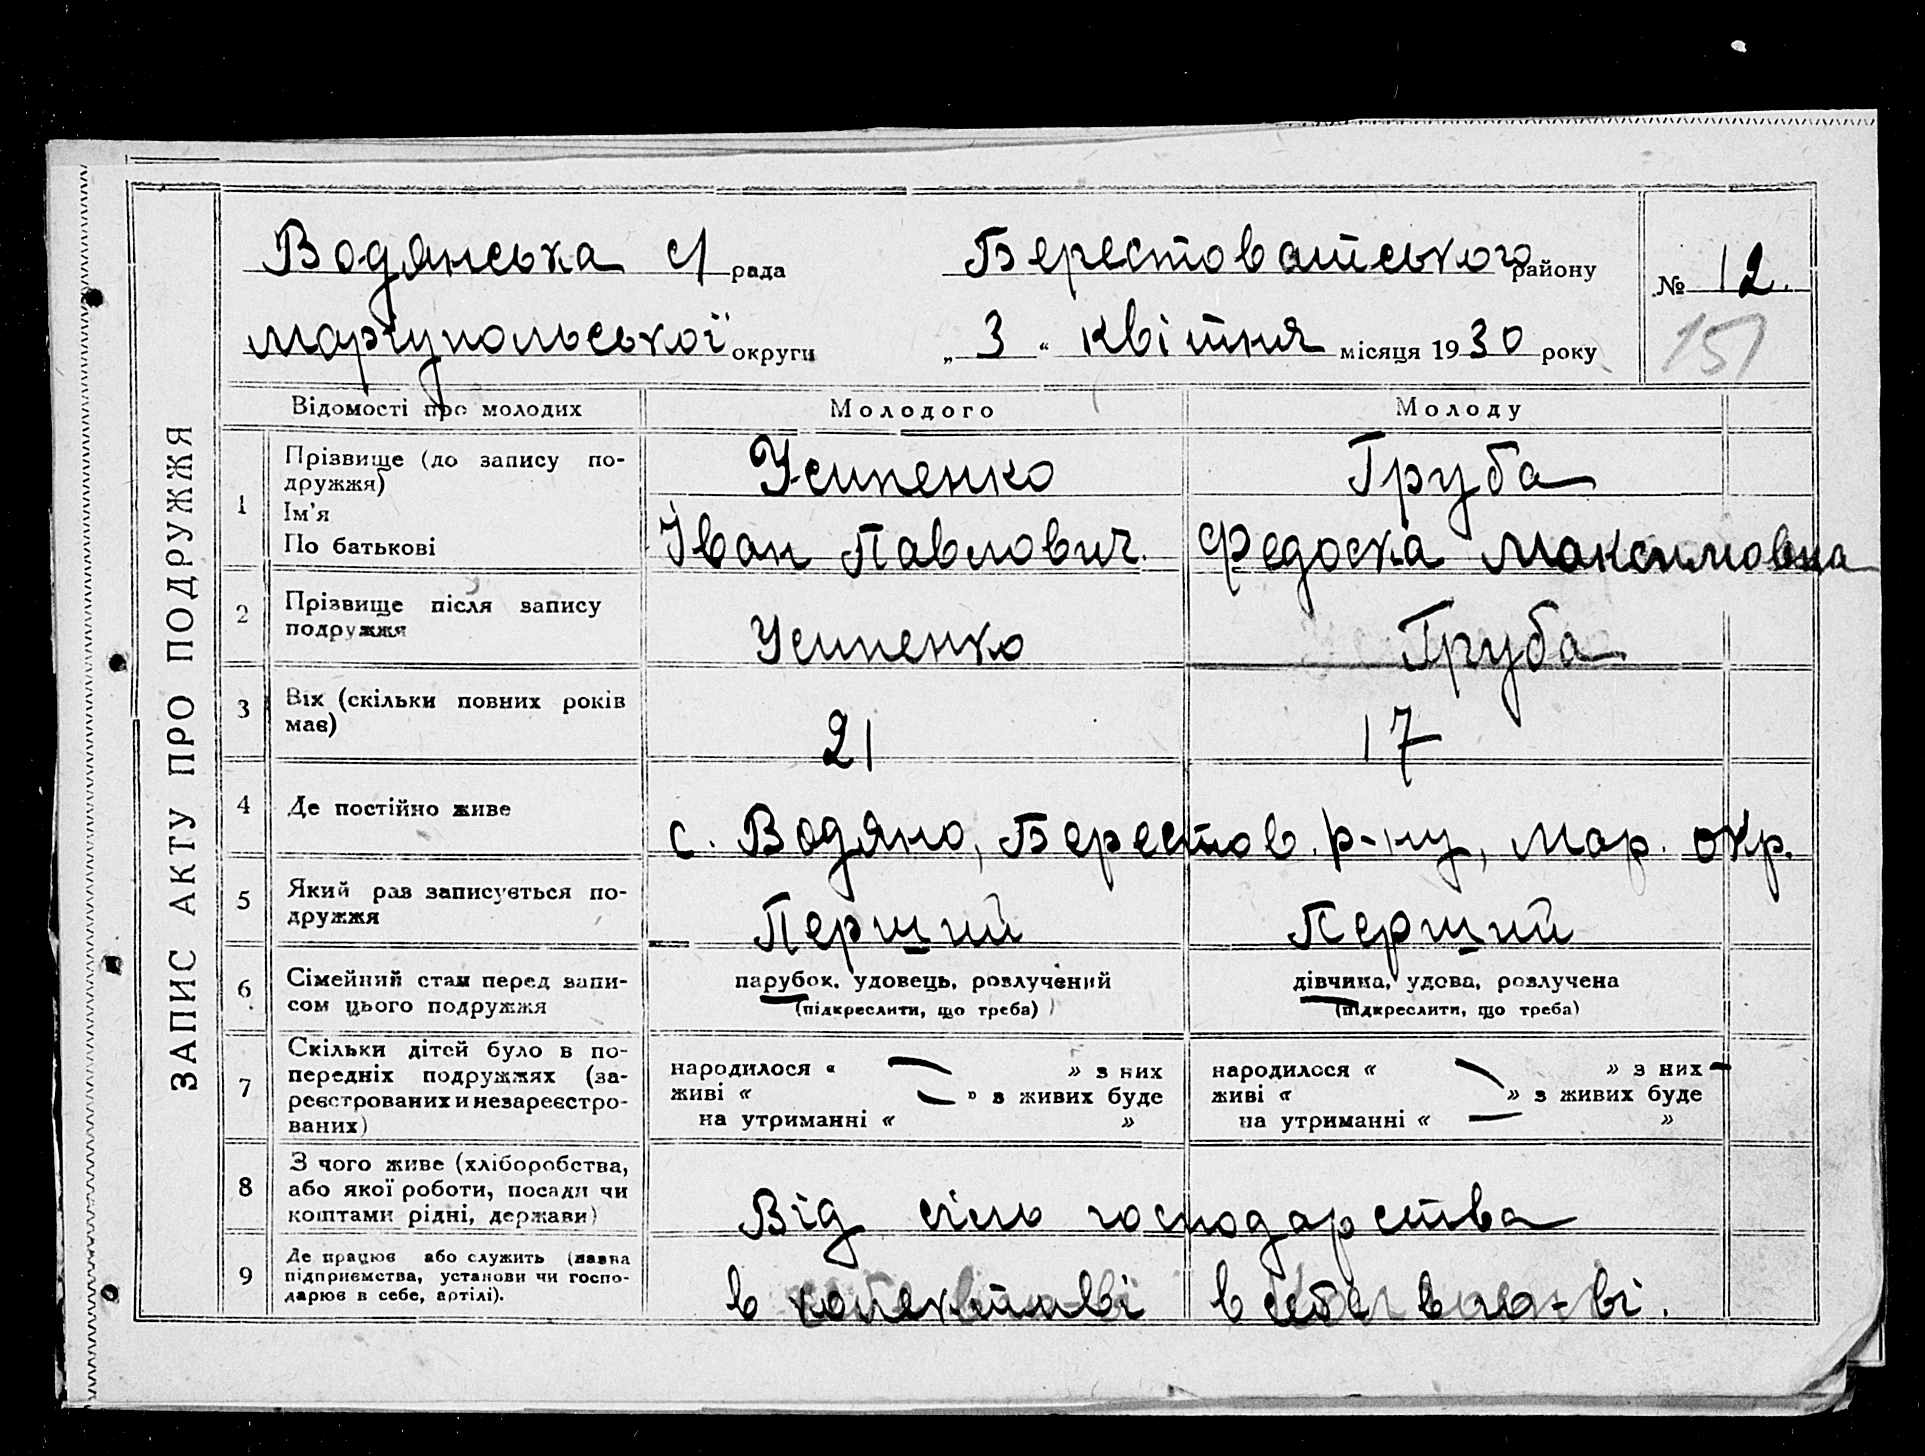 ЗАПИС АКТУ ПРО ПОДРУЖЖЯ
Водянська с/ рада Берестоватського району № 12.
маріупольської округи „ 3 “ квітня місяця 1930 року 151
Відомості про молодих Молодого Молоду
1 Прізвище (до запису по- Усипенко Груба
дружжя)
Ім'я
По батькові Іван Павлович. Федоска Максимовна
2 Прізвище після запису
подружжя Усипенко Груба
3 Вік (скільки повних років
має) 21 17
4 Де постійно живе с. Водяно, Берестов. р-ну, Мар. окр.
5 Який раз записується по-
дружжя Перший Перший
6 Сімейний стан перед запи- парубок, удовець, розлучений дівчина, удова, розлучена
сом цього подружжя (підкреслити, що треба) (підкреслити, що треба)
7 Скільки дітей було в по-
передніх подружжях (за- народилося « » з них народилося « » з них
реєстрованих и незареєстро- живі « » з живих буде живі « » з живих буде
ваних) на утриманні « » на утриманні « »
8 З чого живе (хліборобства,
або якої роботи, посади чи
коштами рідні, держави) Від сіль господарства
9 Де працює або служить (назва
підприємства, установи чи госпо-
дарює в себе, артілі). в колективі в